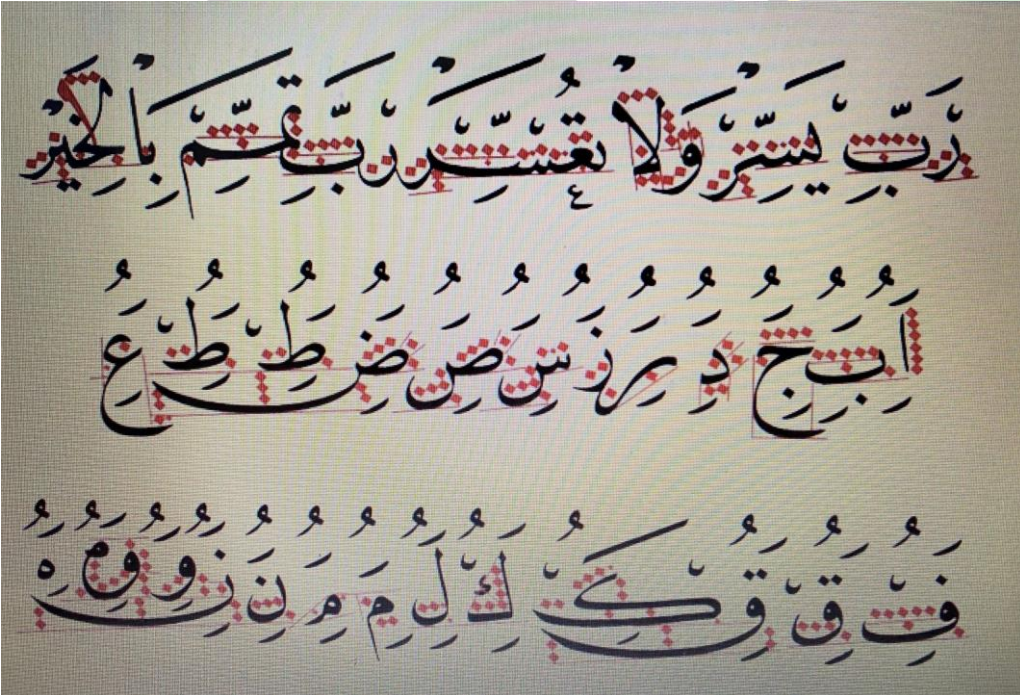 رَبِّ يَسِّرْ وَلَا تُعَسِّرْ رَبِّ تَمِّمْ بِالْخَيْرِ
ا ب ج د ر ز س ص ض ط ط ع
ف ق ق ك ك ل م م ن ن و و م ه